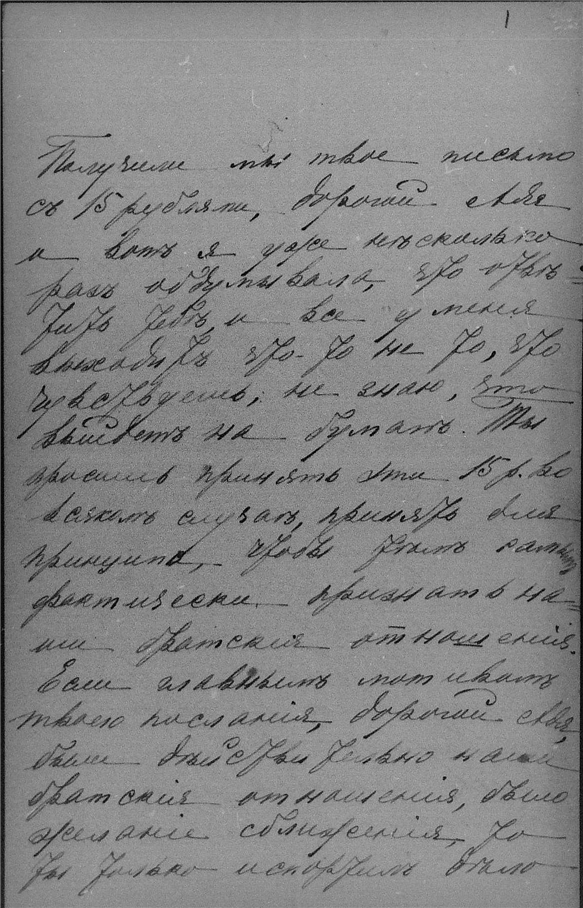 1
Получили мы твое письмо
съ 15 рублями, дорогой
и вотъ я уже нѣсколько
разъ обдумывала, что отвѣ=
тить тебѣ, и все у меня
выходитъ что-то не то, что
чувствуешь; не знаю, что
выйдетъ на бумагѣ. Ты
просишь принять эти 15 р. во
всякомъ случаѣ, принять для
принципа, чтобы тѣмъ самымъ
фактически признать на=
ши братскія отношенія.
Если главнымъ мотивомъ
твоего посланія, дорогой
были дѣйствительно наши
братскія отношенія, было
желаніе сближенія, то
ты только испортилъ дѣло